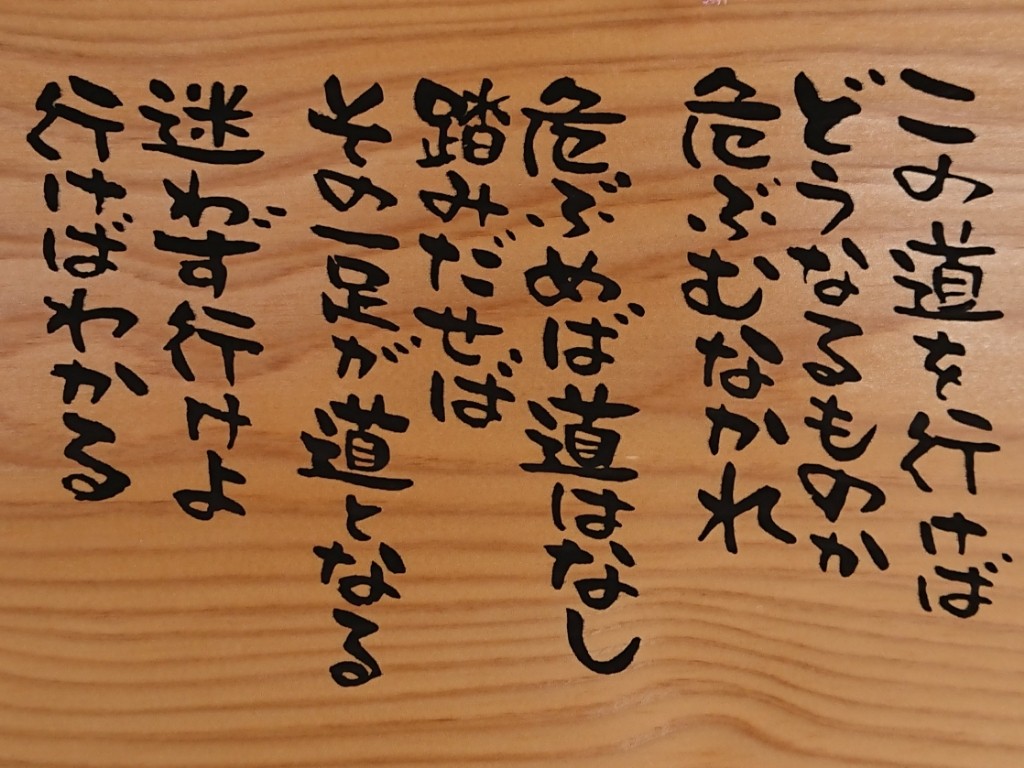 この道を行けば
どうなるものか
危ぶむなかれ
危ぶめば道はなし
踏みだせば
その一足が道となる
迷わず行けよ
行けばわかる